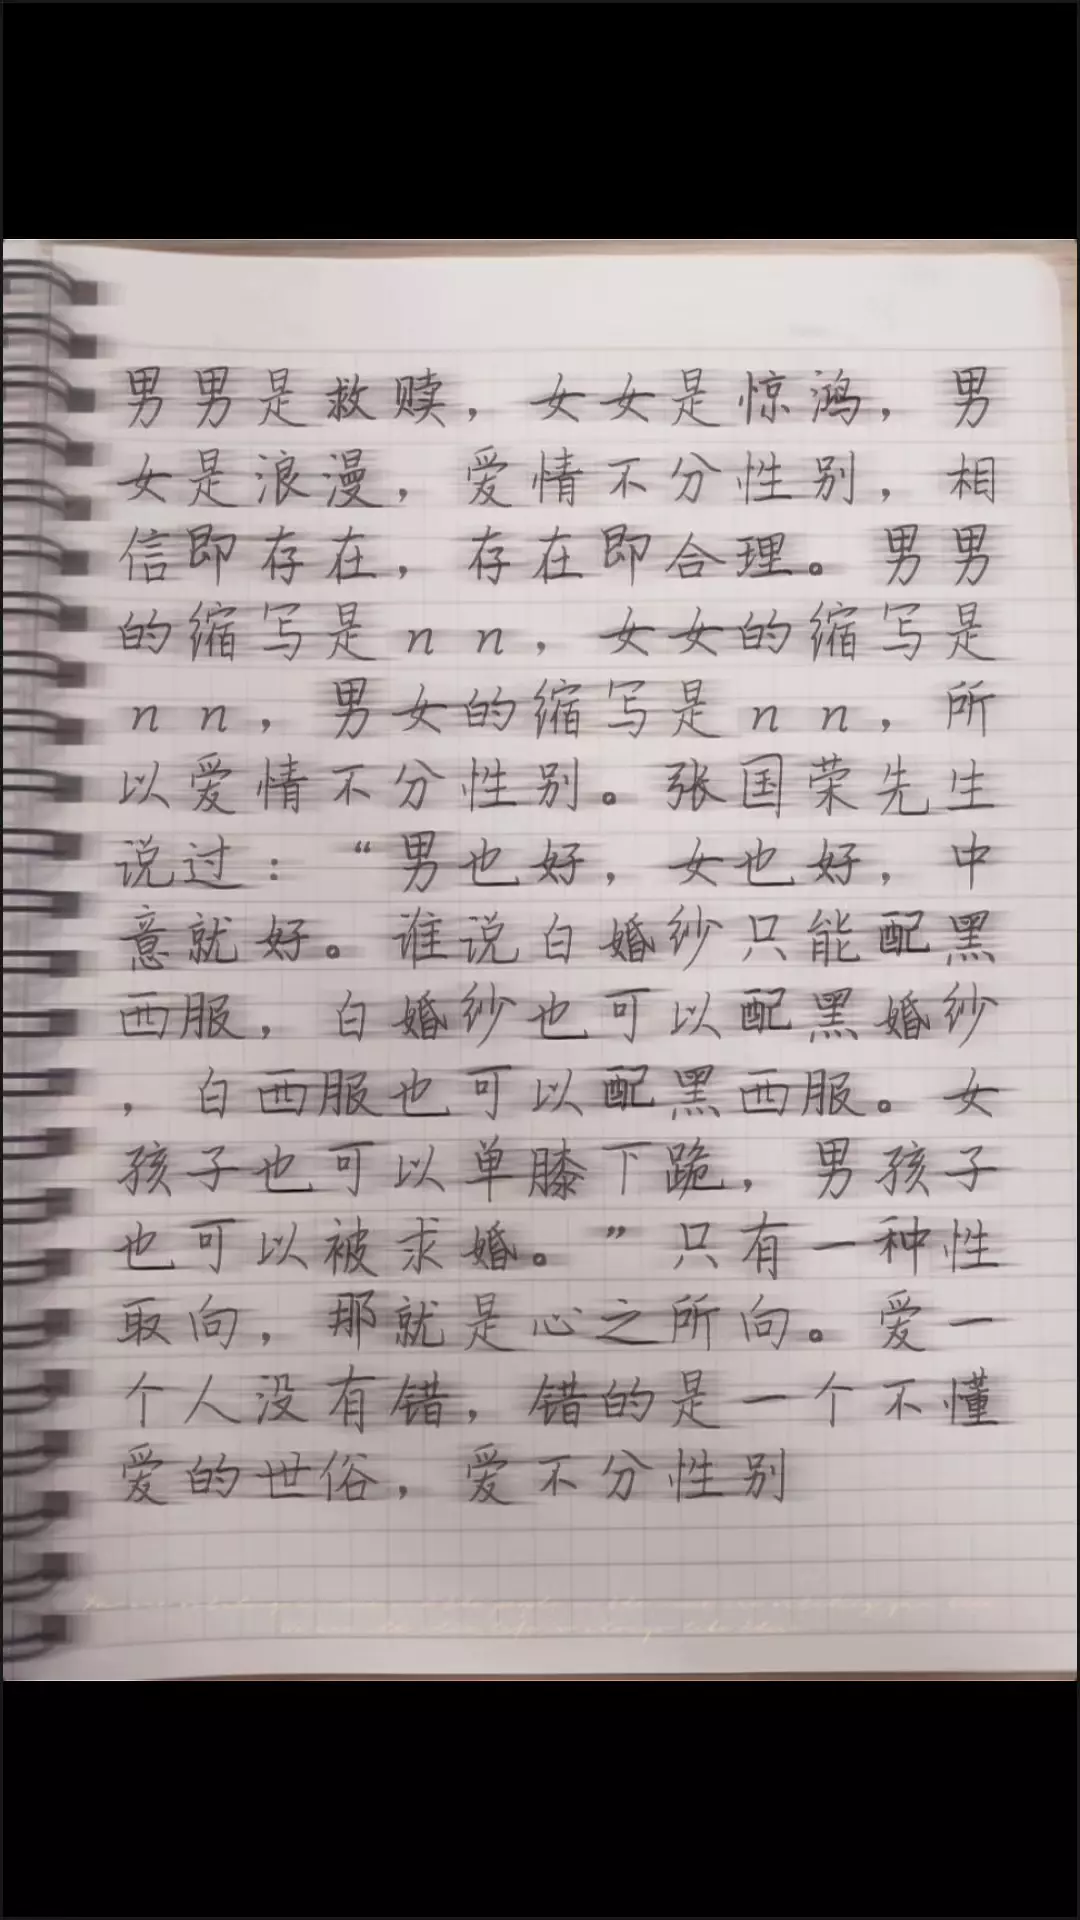 男男是救赎，女女是惊鸿，男
女是浪漫，爱情不分性别，相
信即存在，存在即合理。男男
的缩写是nn，女女的缩写是
nn，男女的缩写是nn，所
以爱情不分性别。张国荣先生
说过：“男也好，女也好，中
意就好。谁说白婚纱只能配黑
西服，白婚纱也可以配黑婚纱
，白西服也可以配黑西服。女
孩子也可以单膝下跪，男孩子
也可以被求婚。”只有一种性
取向，那就是心之所向。爱一
个人没有错，错的是一个不懂
爱的世俗，爱不分性别